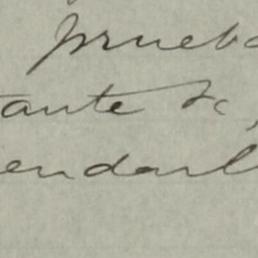 prueba
tante &c,
endarl